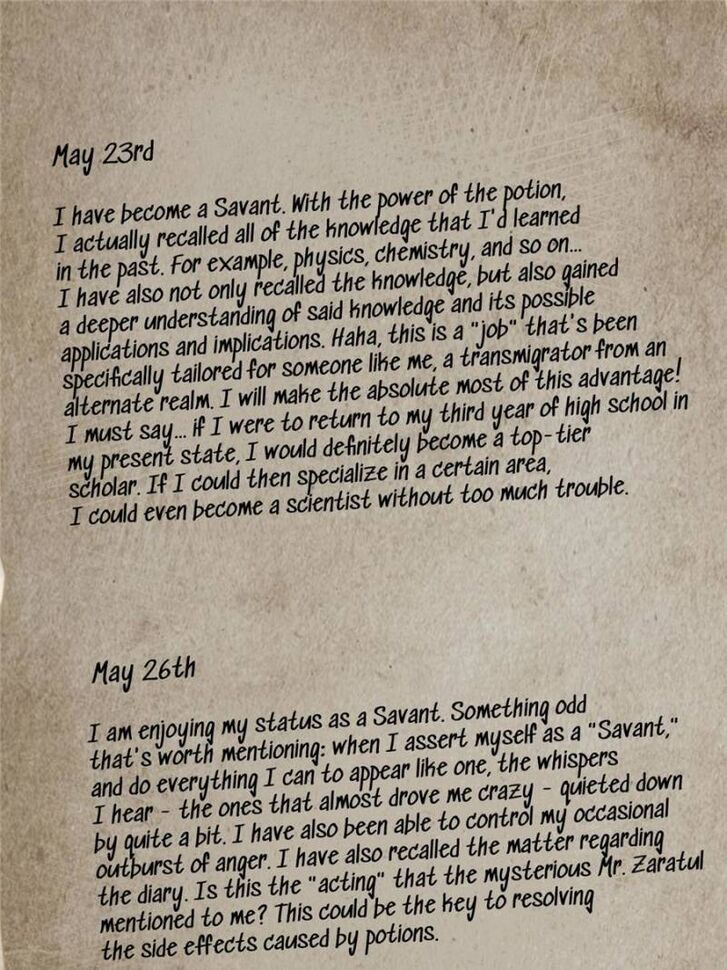 May 23rd
I have become a Savant. With the power of the potion,
I actually recalled all of the knowledge that I'd learned
in the past. For example, physics, chemistry, and so on...
I have also not only recalled the knowledge, but also gained
a deeper understanding of said knowledge and its possible
applications and implications. Haha, this is a "job" that's been
specifically tailored for someone like me, a transmigrator from an
alternate realm. I will make the absolute most of this advantage!
I must say... if I were to return to my third year of high school in
my present state, I would definitely become a top-tier
scholar. If I could then specialize in a certain area,
I could even become a scientist without too much trouble.
May 26th
I am enjoying my status as a Savant. Something odd
that's worth mentioning: when I assert myself as a "Savant,"
and do everything I can to appear like one, the whispers
I hear - the ones that almost drove me crazy - quieted down
by quite a bit. I have also been able to control my occasional
outburst of anger. I have also recalled the matter regarding
the diary. Is this the "acting" that the mysterious Mr. Zaratul
mentioned to me? This could be the key to resolving
the side effects caused by potions.